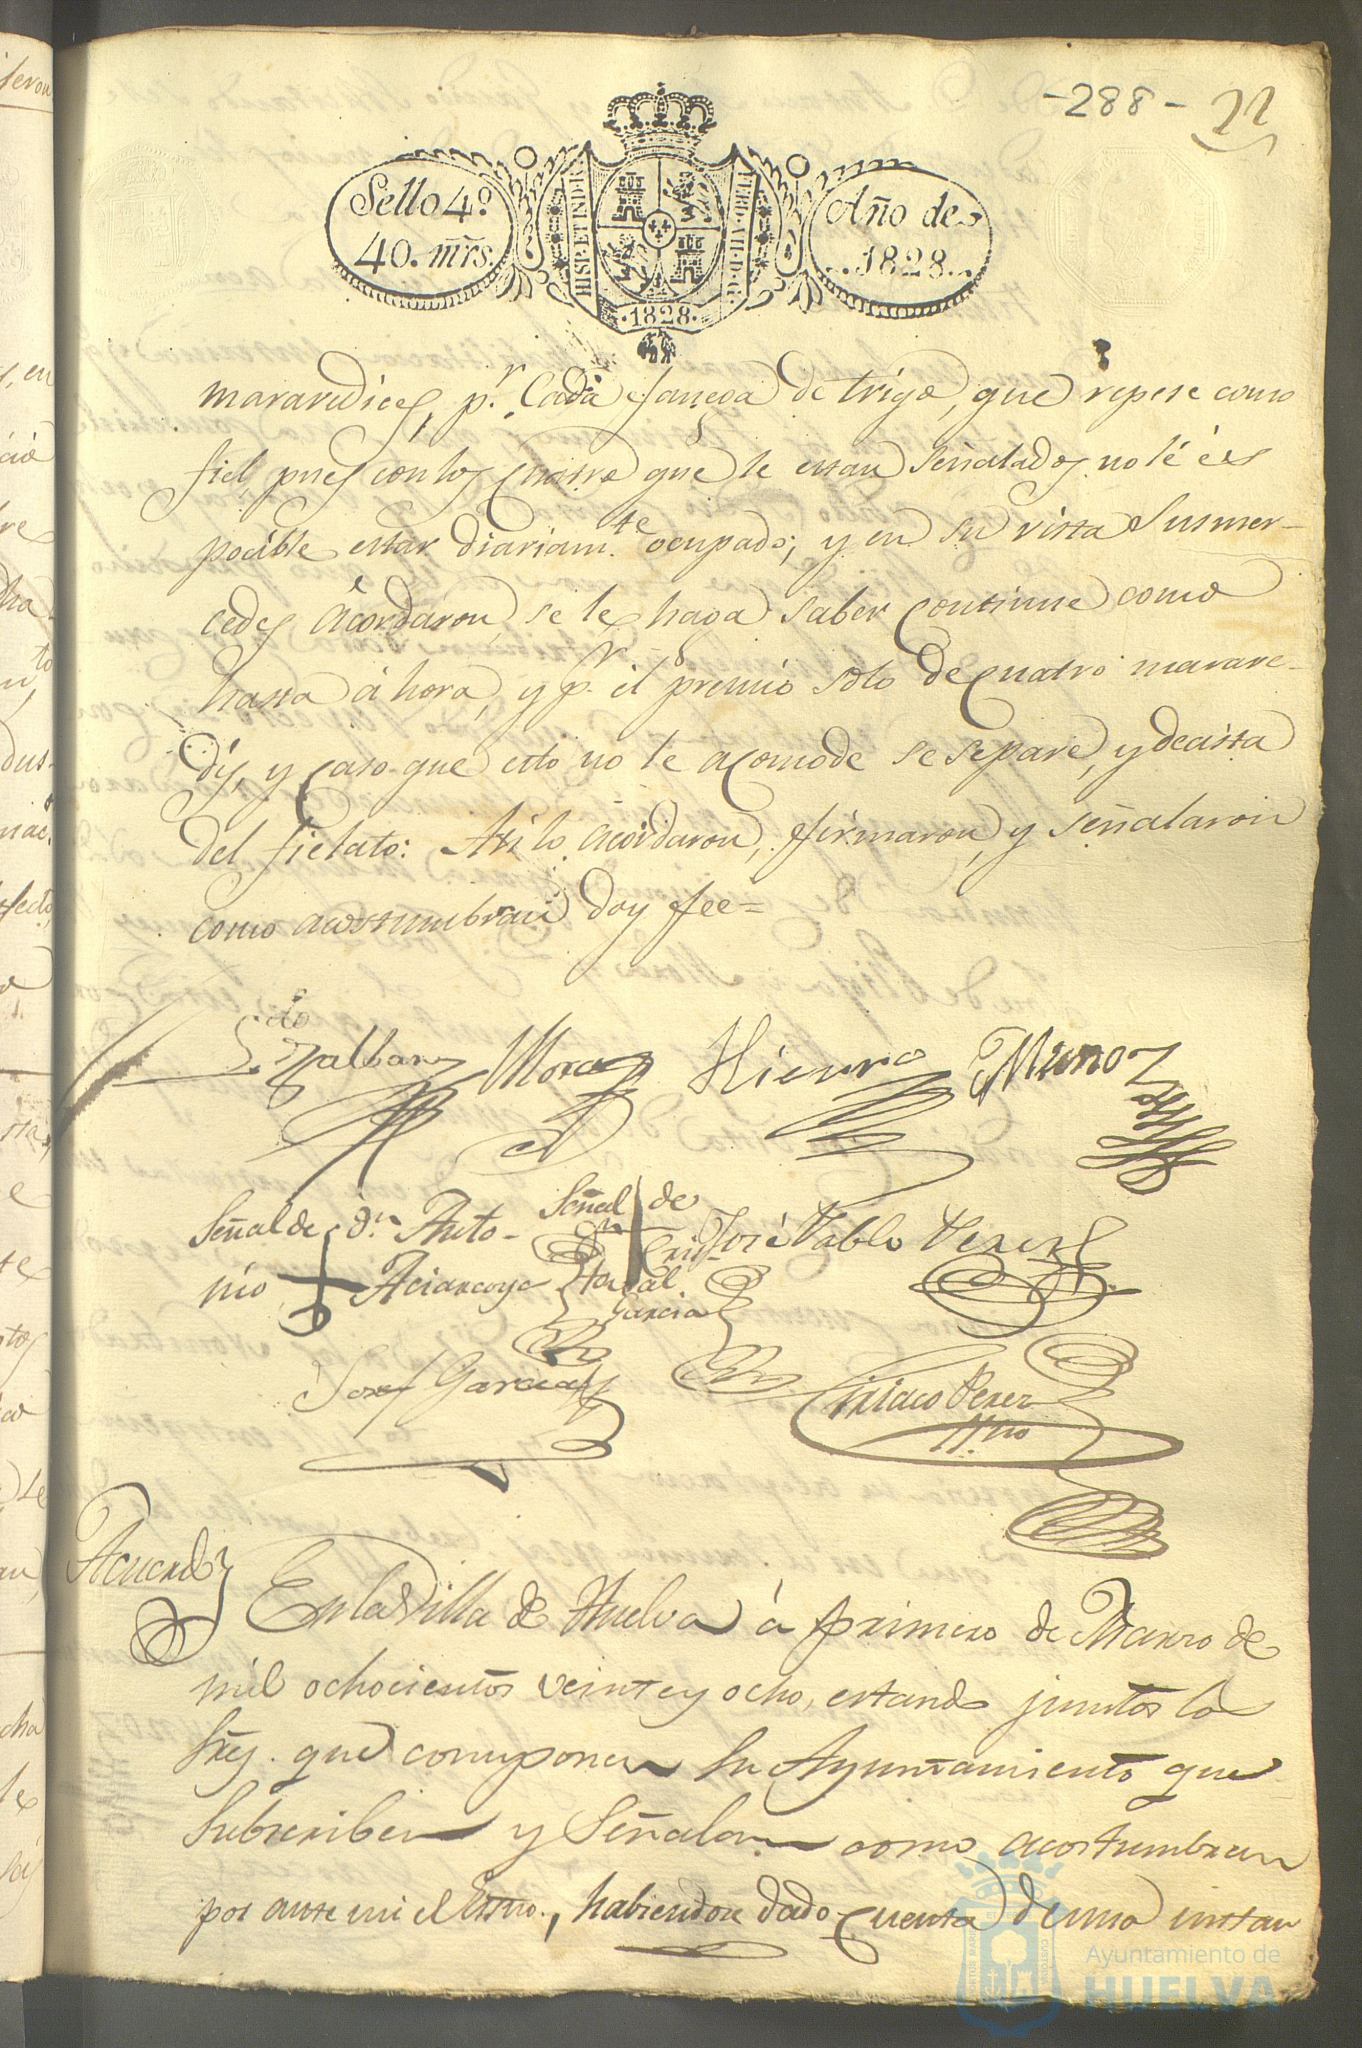 -288- 22
Sello 4º
40. mrs.
HISP. ET IND. R.
FERD. VII. D. G.
·1828·
Año de
1828.
maravedices, pr. Cada fanega de trigo, que repese como
fiel, pues con los cuatro que le estan señalados no lé és
pocible estar diariamte. ocupado; y en su vista Susmer-
cedes acordaron, se le haga saber continue como
hasta áhora, y pr. el premio solo de cuatro marave-
dis, y caso que esto no le acomode se separe, y decista
del fielato: Asi lo acordaron, firmaron, y señalaron
como acostumbran doy fee=
Lcdo
Mora Hierro Muñoz
Señal de dn. Anto-
nio
Señal de
Cris-
tobal
Garcia
José Pablo Perez
Josef Garcia
Ciriaco Perez
Acuerdo
En la Villa de Huelva á primero de Marzo de
mil ochocientos veinte y ocho, estando juntos los
Sres. que componen su Ayuntamiento que
subscriben y Señalan como acostumbran
por ante mi el Essno., habiendose dado cuenta de una instan
Ayuntamiento de
HUELVA